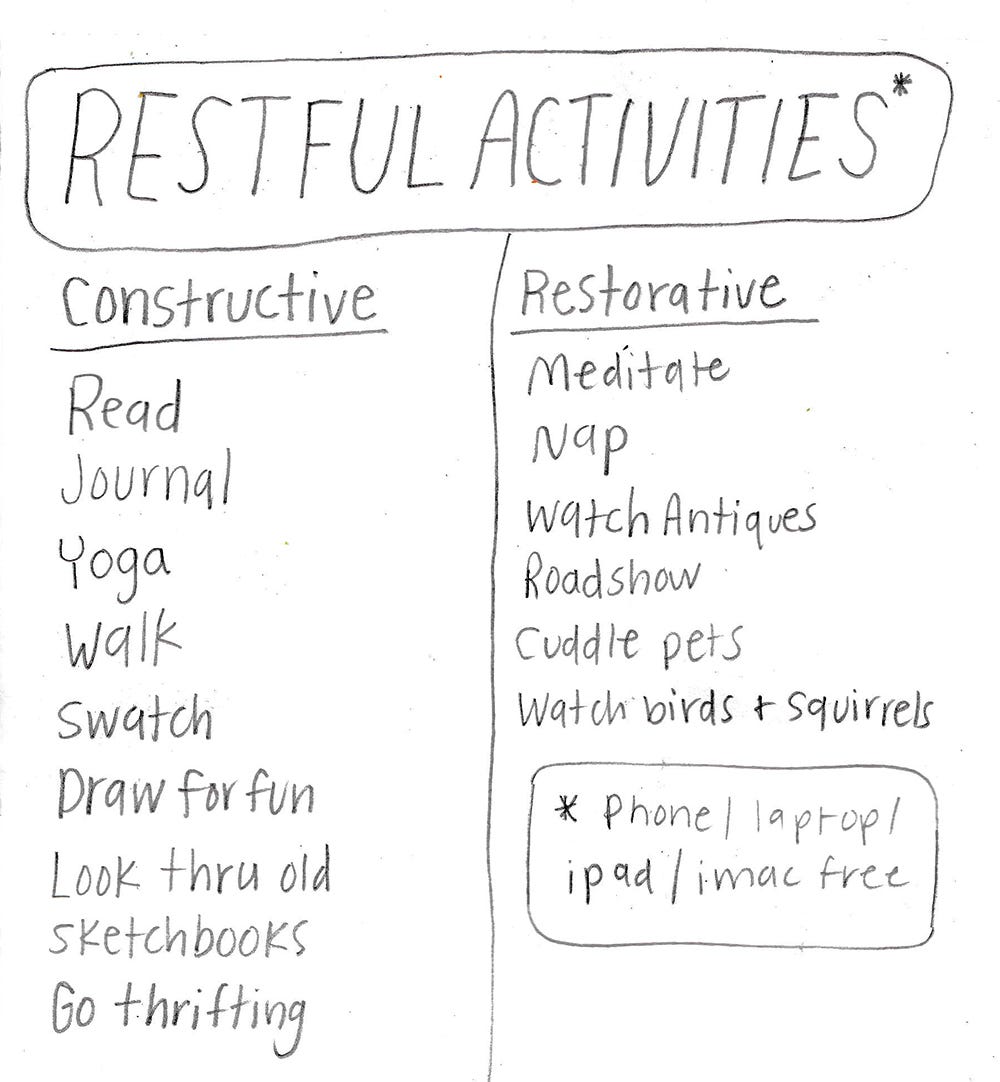 RESTFUL ACTIVITIES*
Constructive
Read
Journal
Yoga
Walk
Swatch
Draw for fun
Look thru old
sketchbooks
Go thrifting
Restorative
Meditate
Nap
Watch Antiques
Roadshow
Cuddle pets
Watch birds + squirrels
* Phone/laptop/
ipad/imac free